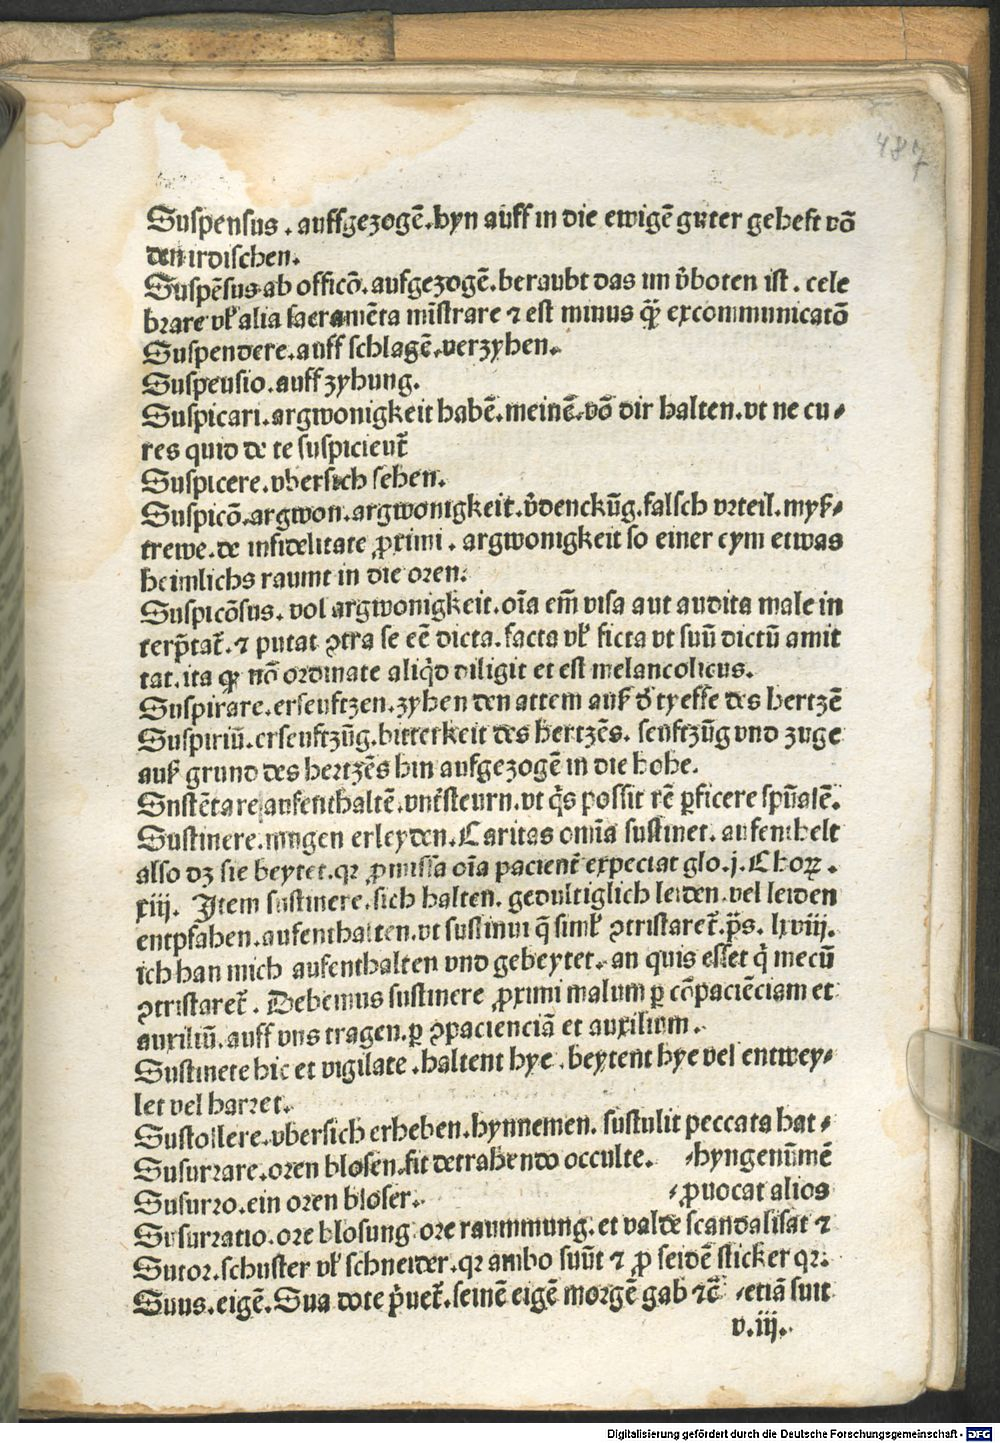 487
Suspensus . auffgezogē. hyn auff in die ewigē guter geheft vō
den irdischen.
Suspēsus ab officō. aufgezogē. beraubt das im v̄boten ist . cele
brare vl̕ alia sacramēta mīstrare ⁊ est minus qꝫ̄ excommunicatō
Suspendere. auff schlagē. verzyhen.
Suspensio. auff zyhung.
Suspicari. argwonigkeit habē. meinē. vō dir halten. vt ne cu⸗
res quid de te suspicient̄
Suspicere. vbersich sehen.
Suspicō. argwon. argwonigkeit. v̄denckūg. falsch vrteil. myß⸗
trewe. de infidelitate ꝓximi . argwonigkeit so einer eym etwas
heimlichs raumt in die oren.
Suspicōsus. vol argwonigkeit. oīa em̄ visa aut audita male in
terp̄tat̄. ⁊ putat ꝯtra se eē dicta. facta vl̕ ficta vt suū dictū amit
tat. ita qꝫ nō ordinate aliq̇d diligit et est melancolicus.
Suspirare. erseuftzen. zyhen den attem auß d̕ tyeffe des hertzē
Suspiriū. erseuftzūg. bitterkeit des hertzēs. seuftzūg vnd zuge
auß grund des hertzēs hin aufgezogē in die hohe.
Sustētare aufenthaltē. vnt̕steurn. vt q̇s possit rē ꝑficere spūalē.
Sustinere. mugen erleyden. Caritas omīa sustinet. aufenthelt
also dz sie beytet. qꝛ ꝓmissa oīa pacient̄ expectat glo. j. Choꝝ.
xiij. Item sustinere. sich halten. gedultiglich leiden. vel leiden
entpfahen. aufenthalten. vt sustinui q̄ siml̕ ꝯtristaret̄. p̄s. lxviij.
ich han mich aufenthalten vnd gebeytet. an quis esset q̇ mecū
ꝯtristaret̄. Debemus sustinere ꝓximi malum ꝑ cōpaciēciam et
auxiliū. auff vns tragen. ꝑ ꝯpacienciā et auxilium.
Sustinete hic et vigilate. haltent hye. beytent hye vel entwey⸗
let vel harret.
Sustollere. vbersich erheben. hynnemen. sustulit peccata hat⸗
Susurrare. oren blosen. fit detrahendo occulte. ⸗hyngenūmē
Susurro. ein oren bloser. ⸗ꝓuocat alios
Susurratio. ore blosung ore raummung. et valde scandalisat ⁊
Sutor. schuster vl̕ schneider. qꝛ ambo suūt ⁊ ꝓ seidē sticker qꝛ.
Suus. eigē. Sua dote p̄uet̄. seinē eigē morgē gab ⁊c̄ ⸗etiā suit
v. iij.
Digitalisierung gefördert durch die Deutsche Forschungsgemeinschaft - DFG